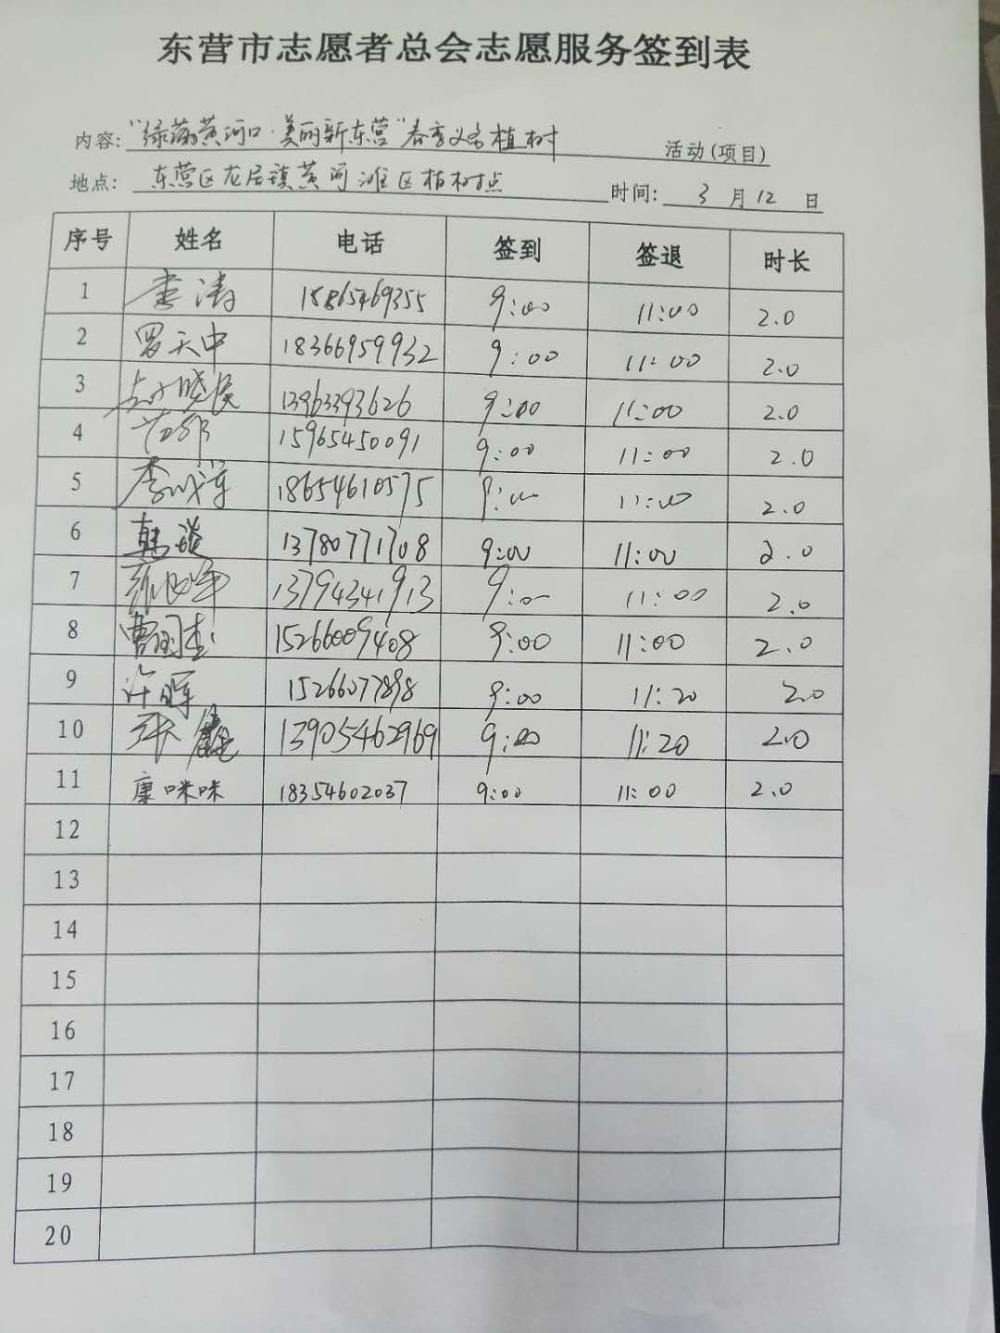 东营市志愿者总会志愿服务签到表
内容: "绿荫黄河口·美丽新东营"春季义务植树 活动(项目)
地点: 东营区龙居镇黄河滩区植树点 时间: 3月12日
序号 姓名 电话 签到 签退 时长
1 李涛 18865469355 9:00 11:00 2.0
2 罗天中 18366959932 9:00 11:00 2.0
3 13963393626 9:00 11:00 2.0
4 15965450091 9:00 11:00 2.0
5 18654610575 9:00 11:00 2.0
6 13780771708 9:00 11:00 2.0
7 13794341913 9:00 11:00 2.0
8 15266009408 9:00 11:00 2.0
9 许晖 15266077898 9:00 11:20 2.0
10 张鑫 13905462969 9:00 11:20 2.0
11 康咪咪 18354602037 9:00 11:00 2.0
12
13
14
15
16
17
18
19
20